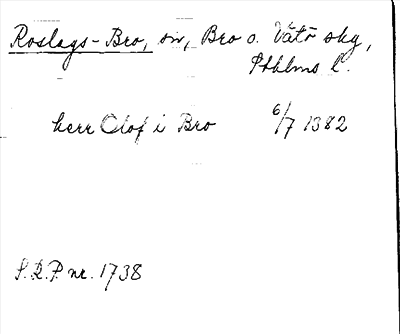 Roslags-Bro, sn, Bro o. Vätö skg,
Sthlms l.
herr Olof i Bro 6/7 1382
S.R.P. nr. 1738